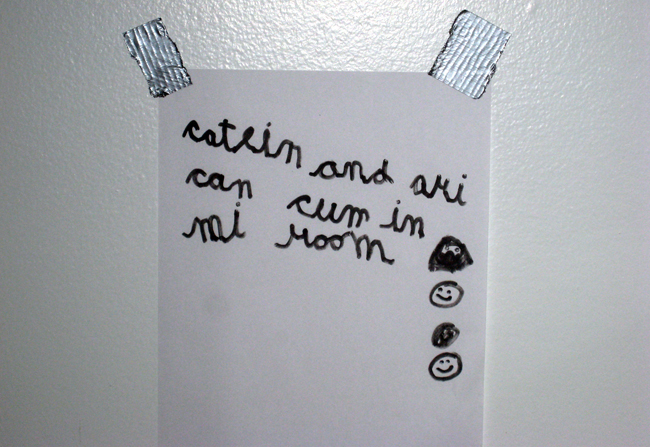 catlin and ari
can cum in
mi room